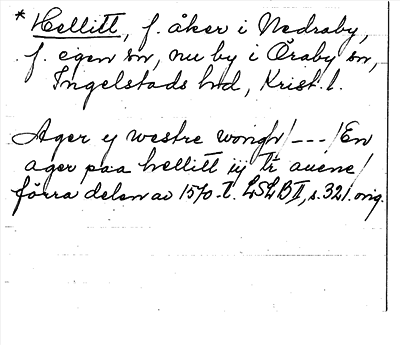 * Hellitt, f. åker i Nedraby,
f. egen sn, nu by i Öraby sn,
Ingelstads hd, Krist. l.
Ager y westre wongh /---/ En
ager paa hellitt iij tr auene /
förra delen av 1570-t. LSLB II, s. 321. orig.